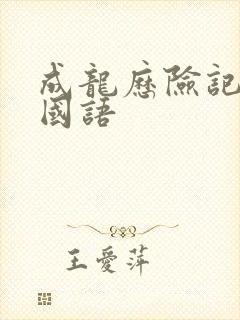 成龍歷險記
國語
王愛萍